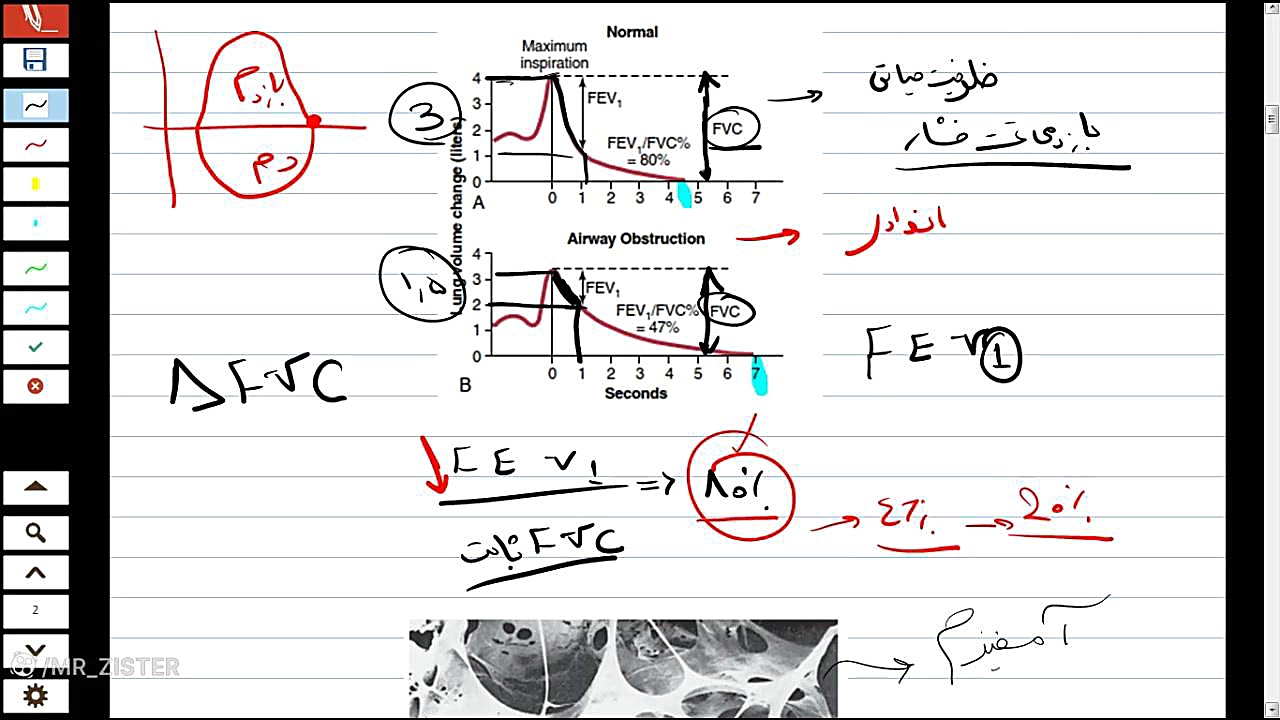 Normal
Maximum
inspiration
4
3
2
1
0
FEV₁
FEV₁/FVC%
= 80%
FVC
A
0 1 2 3 4 5 6 7
Lung volume change (liters)
Airway Obstruction
4
3
2
1
0
FEV₁
FEV₁/FVC%
= 47%
FVC
B
0 1 2 3 4 5 6 7
Seconds
بازدم
دم
3
۱,۵
ظرفیت حیاتی
بازدمی تحت فشار
FEV1
Δ FVC
FEV1
ثابت FVC
=> ۸۰٪
20٪
آمفیزم
2
/MR_ZISTER